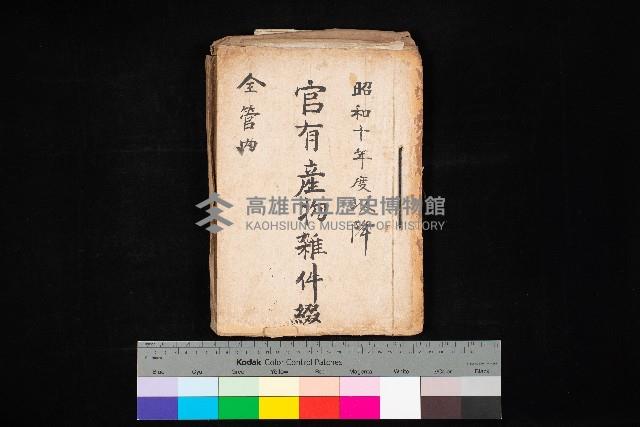 昭和十年度以降
官有産物雑件綴
全管内
高雄市立歷史博物館
KAOHSIUNG MUSEUM OF HISTORY
Kodak Color Control Patches
Blue Cyan Green Yellow Red Magenta White 3/Color Black